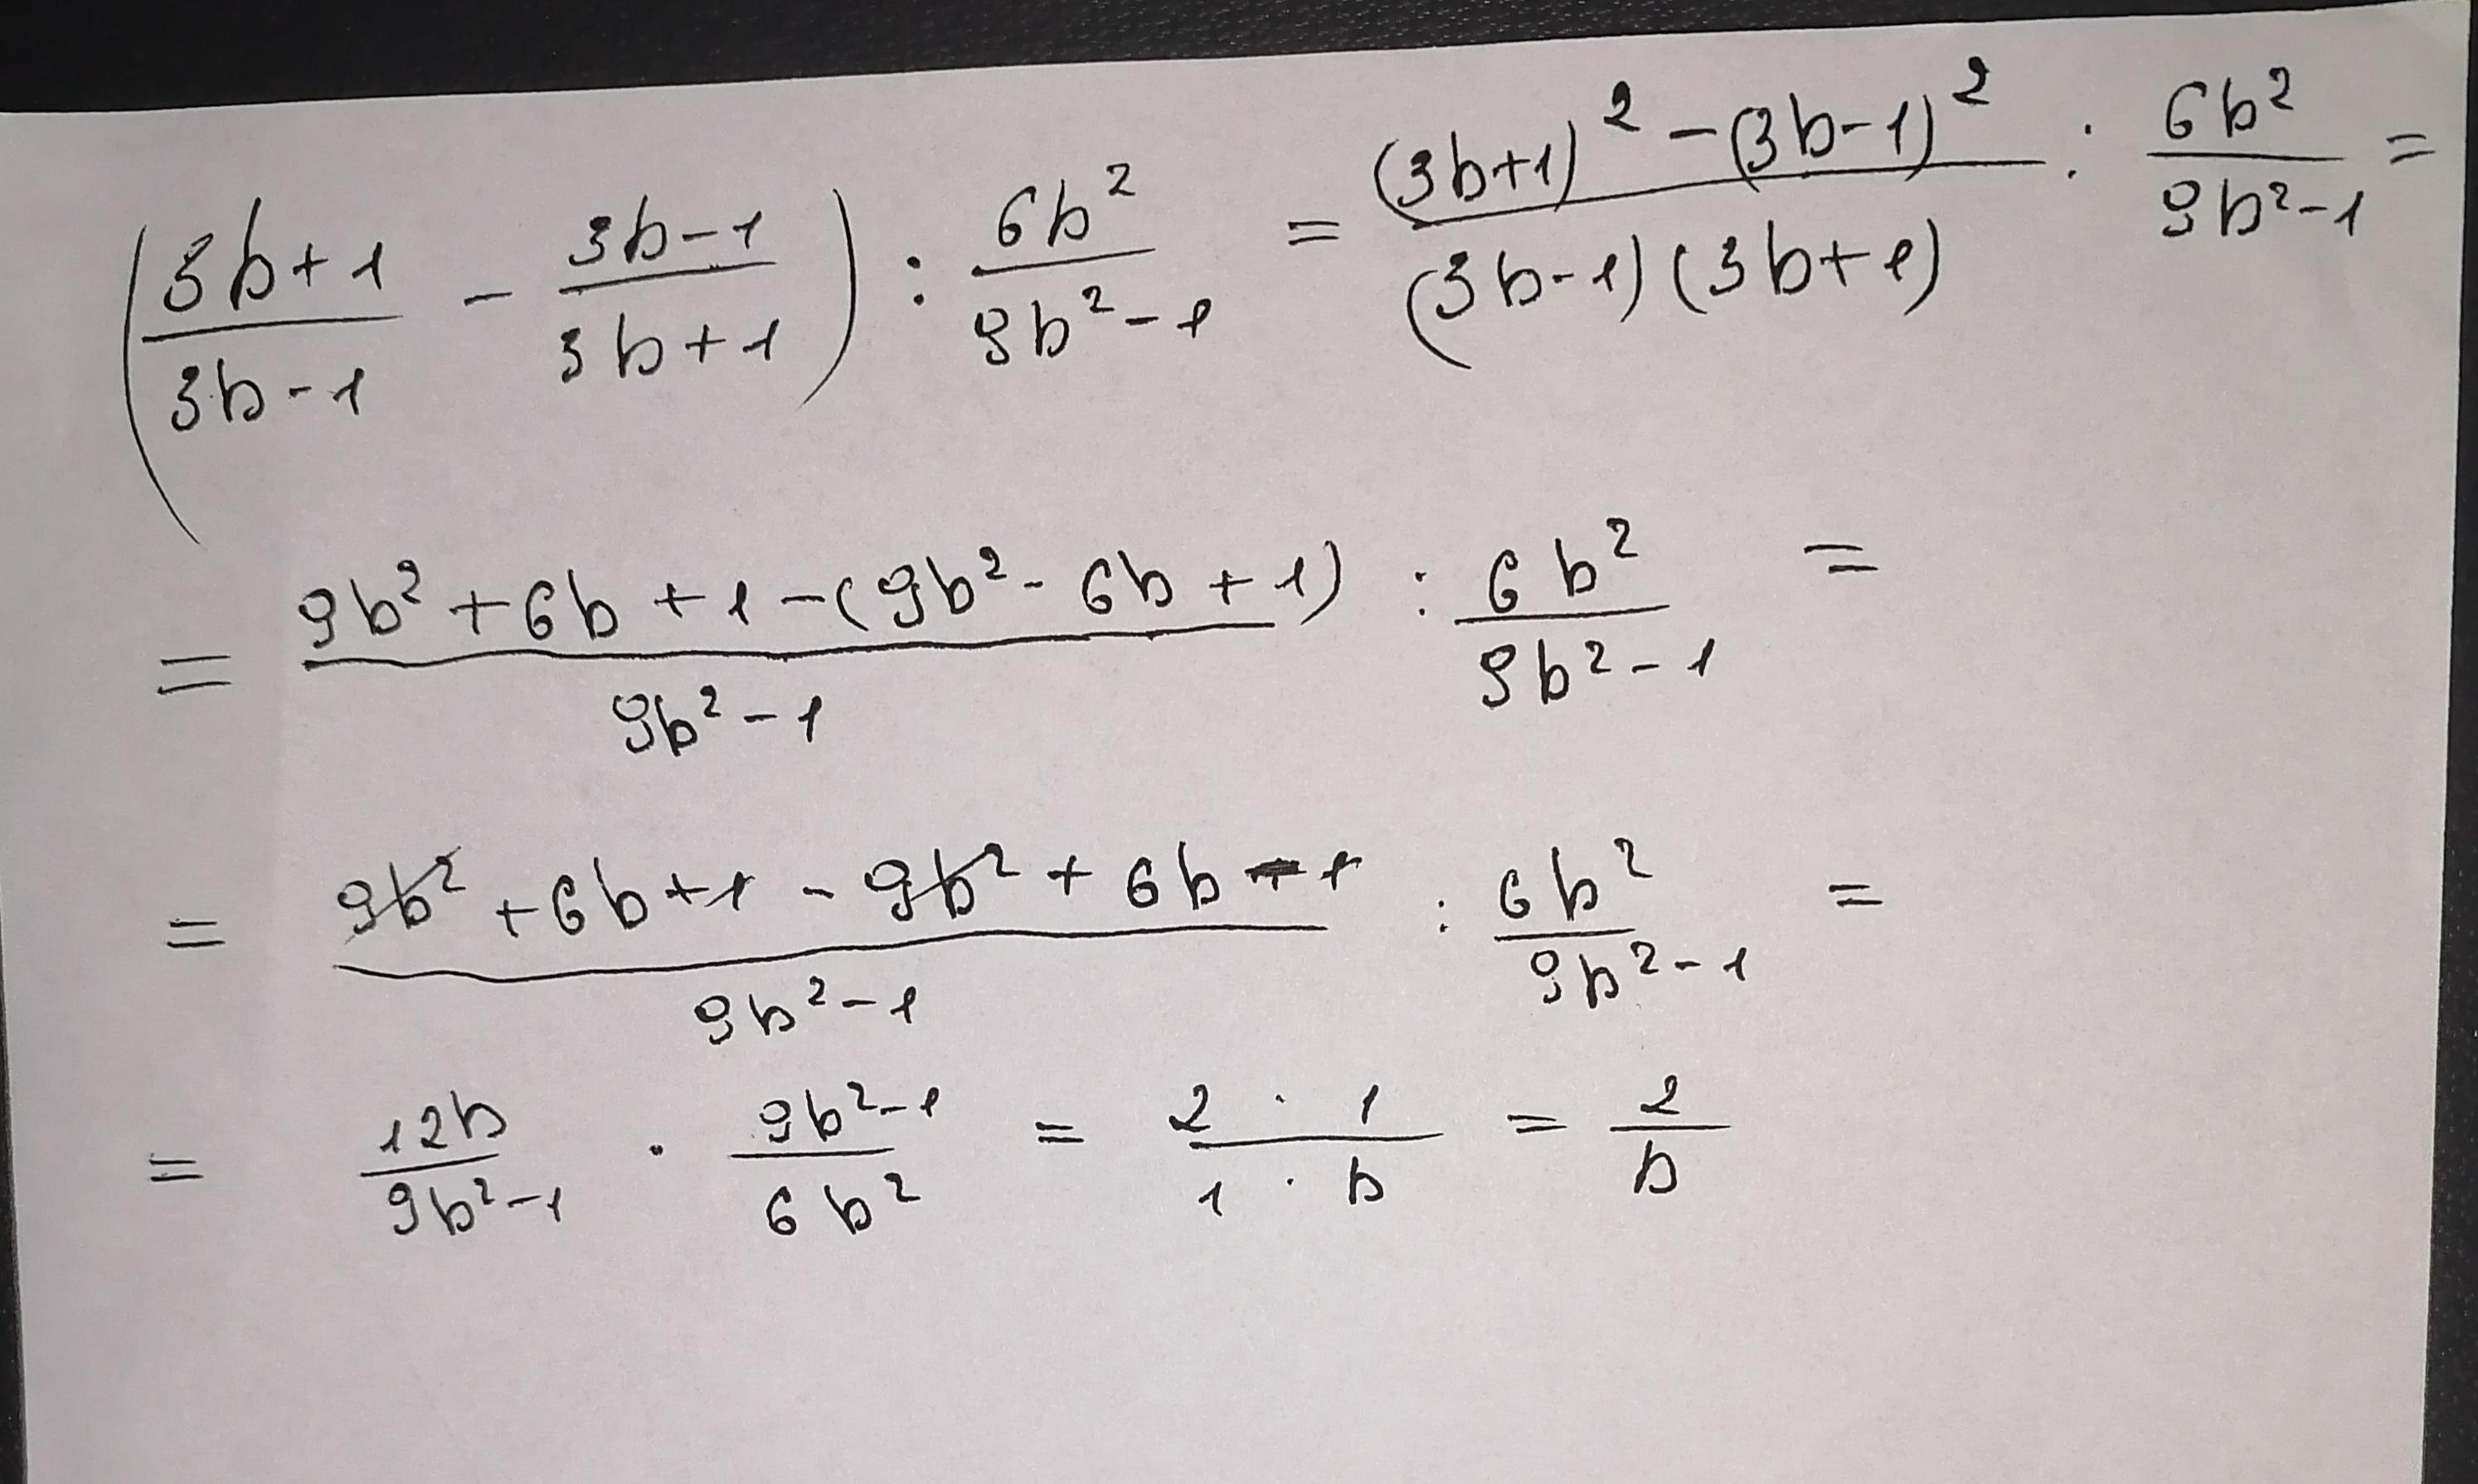 (3b+1/3b-1 - 3b-1/3b+1) : 6b²/9b²-1 = (3b+1)²-(3b-1)²/(3b-1)(3b+1) : 6b²/9b²-1 =
= 9b²+6b+1-(9b²-6b+1)/9b²-1 : 6b²/9b²-1 =
= 9b²+6b+1-9b²+6b-1/9b²-1 : 6b²/9b²-1 =
= 12b/9b²-1 · 9b²-1/6b² = 2·1/1·b = 2/b